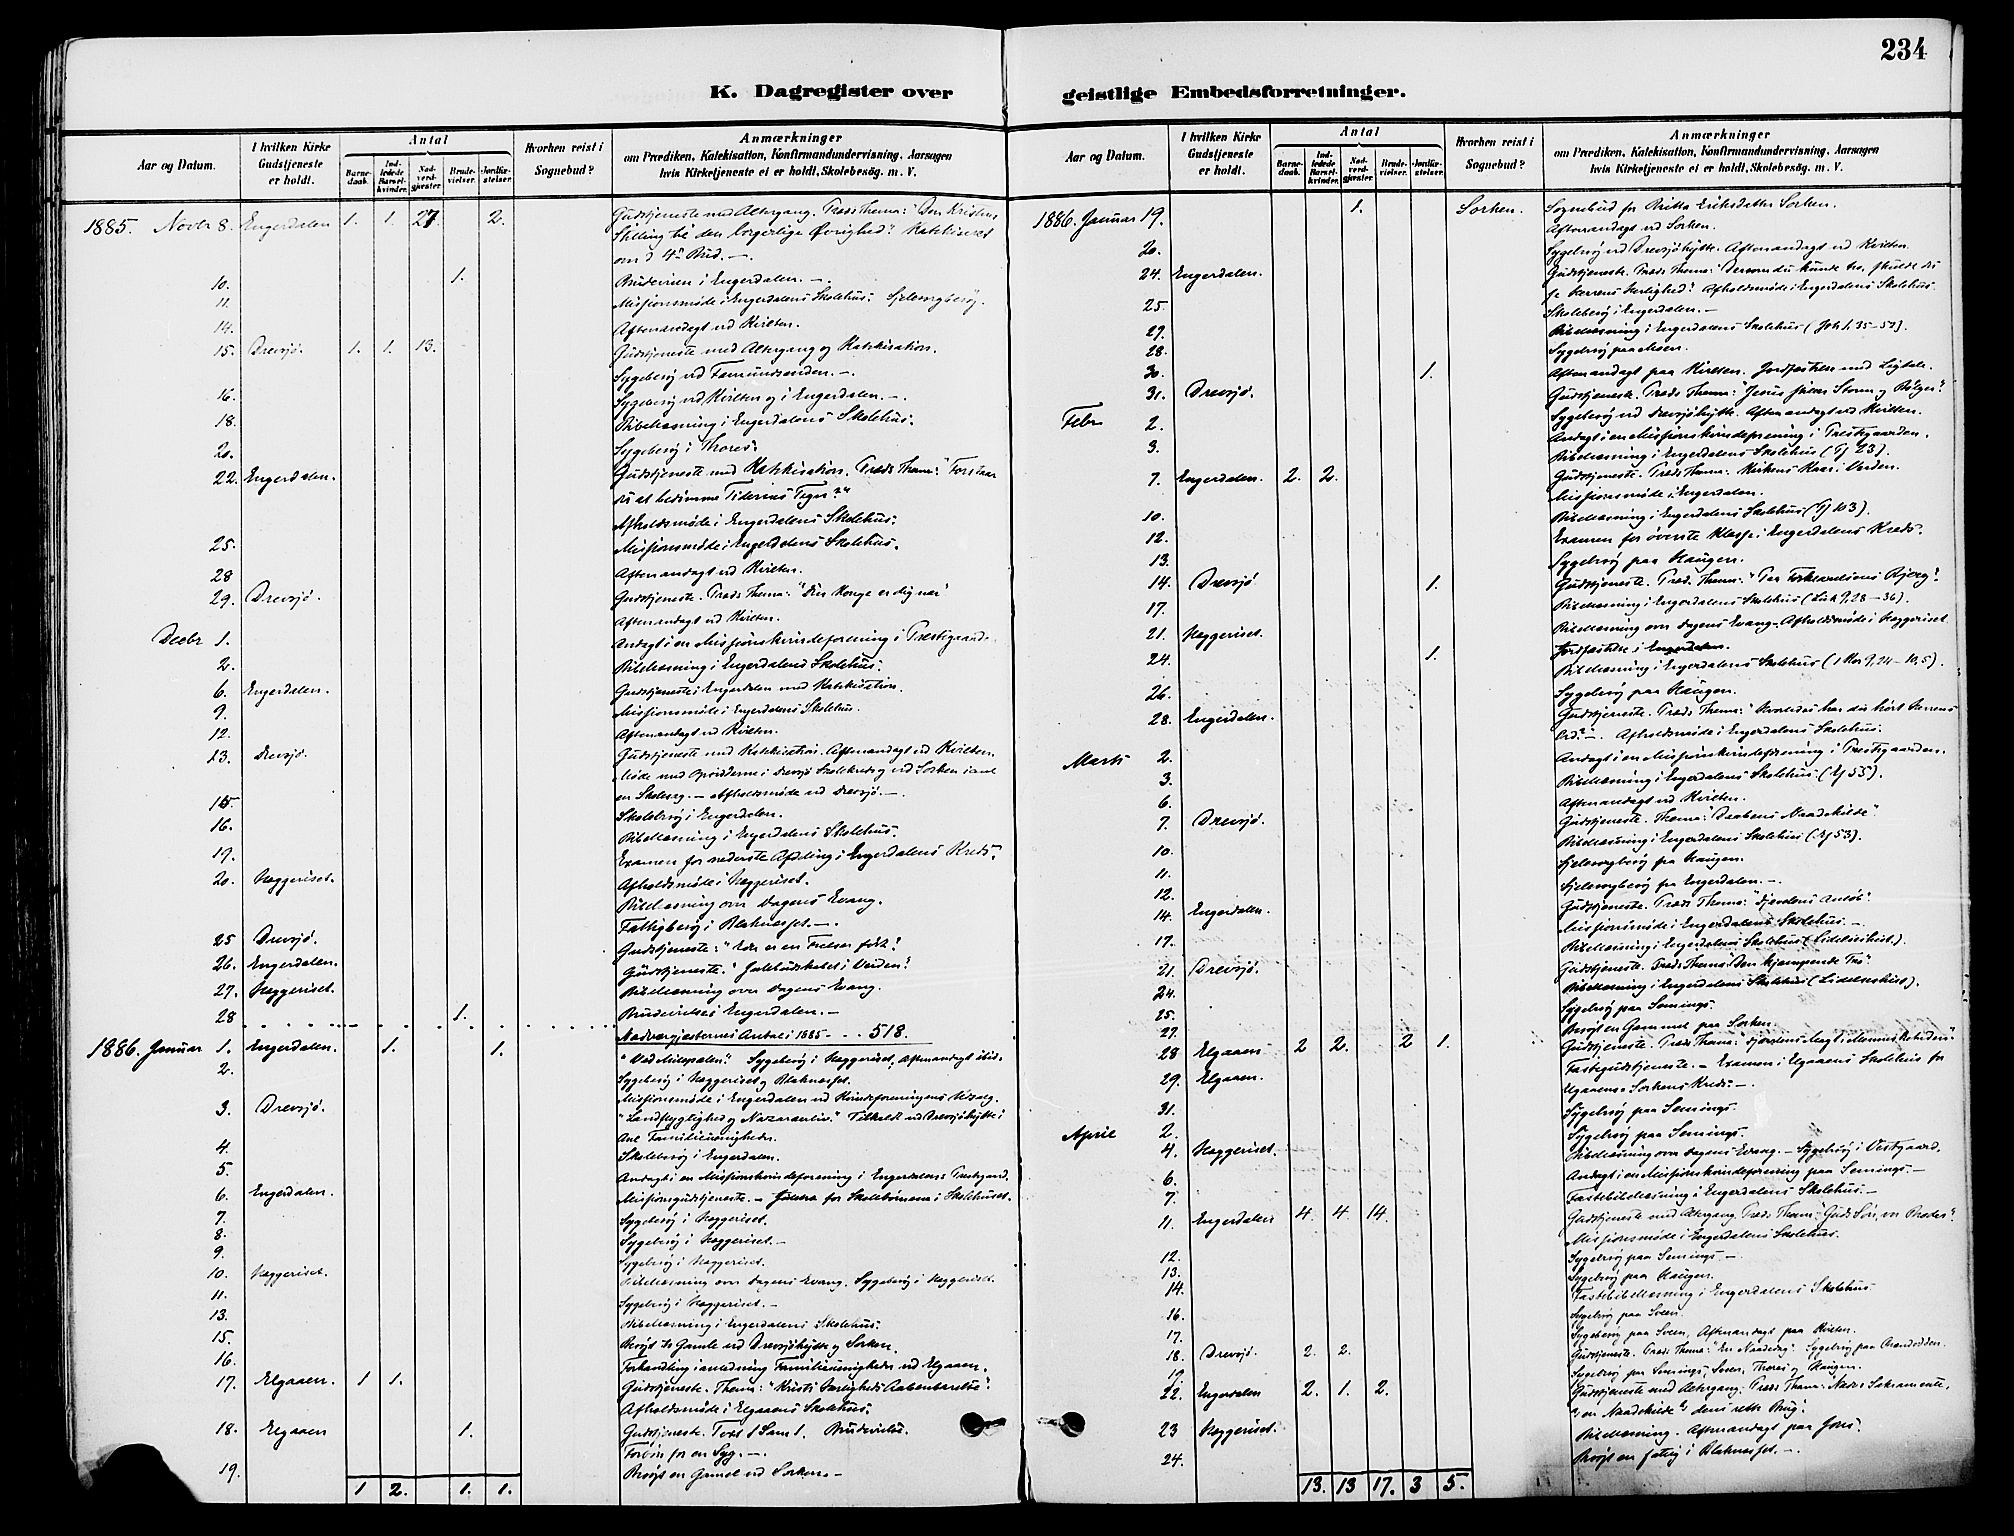 234
K. Dagregister over geistlige Embedsforretninger.
Aar og Datum.
I hvilken Kirke Gudstjeneste er holdt.
Antal
Barnedaab.
Indledede Barselkvinder.
Nadverdgjester.
Brudevielser.
Jordfæstelser.
Hvorhen reist i Sognebud?
Anmærkninger
om Prædiken, Katekisation, Konfirmandundervisning, Aarsagen
hvis Kirketjeneste ei er holdt, Skolebesøg. m. V.
1885. Novbr 8. Engerdalen 1. 1. 27. 2. Gudstjeneste med Altergang. Præds Thema: "Den Kristnes
Stilling til den borgerlige Øvrighed." Katekiseret
over d. 4de Bud. —
10. 1. Brudevielse i Engerdalen. —
11. Missionsmøde i Engerdalens Skolehus. Sjelesorgbesøg.
14. Aftenandagt ved Kvilten.
15. Drevsjø. 1. 1. 13. Gudstjeneste med Altergang og Katekisation.
Sygebesøg ved Femundsenden. —
16. Sygebesøg ved Kvilten og i Engerdalen. —
18. Bibellæsning i Engerdalens Skolehus.
20. Sygebesøg i Thores.
22. Engerdalen. Gudstjeneste med Katekisation. Præds Thema: "Forstaar
du at bedømme Tidernes Tegn?"
Afholdsmøde i Engerdalens Skolehus.
25. Missionsmøde i Engerdalens Skolehus.
28 Aftenandagt ved Kvilten.
29. Drevsjø. Gudstjeneste. Præds Thema: "Din Konge er dig nær"
Aftenandagt ved Kvilten.
Decbr 1. Andagt i en Missionskvindeforening i Præstegaarden.
2. Bibellæsning i Engerdalens Skolehus.
6. Engerdalen. Gudstjeneste i Engerdalen med Katekisation.
9. Missionsmøde i Engerdalens Skolehus.
12. Aftenandagt ved Kvilten.
13. Drevsjø. Gudstjeneste med Katekisation. Aftenandagt ved Kvilten.
Møde med Opsidderne i Drevsjø Skolekreds og ved Sorken
Afholdsmøde ved Drevsjø. —
15. Skolebesøg i Engerdalen.
16. Bibellæsning i Engerdalens Skolehus.
19. Examen for nederste Afdeling i Engerdalens Kreds.
20. Heggeriset. Afholdsmøde i Heggeriset.
Bibellæsning over Dagens Evang.
Fattigbesøg i Blaknæsset. —
25 Drevsjø. Gudstjeneste: "Eder er en Frelser født!"
26. Engerdalen. Gudstjeneste. "Julebudskabet i Verden."
27. Heggeriset. Bibellæsning over Dagens Evang.
28 1. Brudevielse i Engerdalen. —
Nadvergjesternes Antal i 1885 - - - 518.
1886. Januar 1. Engerdalen. 1. 1. "Ved Milepælen." Sygebesøg i Heggeriset, Aftenandagt
2. Sygebesøg i Heggeriset og Blaknæsset.
Missionsmøde i Engerdalen ved Kvindeforeningens Udsalg.
3. Drevsjø. "Landflygtighed og Nazaræerliv." Tilkaldt ved Drevsjøhytte i
Anl. Familieuenigheder.
4. Skolebesøg i Engerdalen.
5. Andagt i en Missionskvindeforening i Engerdalens Præstegaard.
6. Engerdalen. Missionsgudstjeneste. — Juletræ for Skolebørnene i Skolehuset.
7. Sygebesøg i Heggeriset.
8. Sygebesøg i Heggeriset. —
9. Sygebesøg i Heggeriset.
10. Heggeriset. Bibellæsning over Dagens Evang. Sygebesøg i Heggeriset.
11. Sygebesøg i Heggeriset. —
13. Bibellæsning i Engerdalens Skolehus.
15. Besøgt to Gamle ved Drevsjøhytte og Sorken.
16. Forhandling i anledning Familieuenigheder ved Elgaaen.
17. Elgaaen. 1 1. Gudstjeneste. Thema: "Kristi Herligheds Aabenbarelse."
Afholdsmøde i Elgaaens Skolehus.
18. Elgaaen 1. Gudstjeneste. Text 1 Sam 1. Brudevielse.
Forbøn for en Syg. —
19. Besøgt en Gammel ved Sorken. —
1 2. 1. 1.
Aar og Datum.
I hvilken Kirke Gudstjeneste er holdt.
Antal
Barnedaab.
Indledede Barselkvinder.
Nadverdgjester.
Brudevielser.
Jordfæstelser.
Hvorhen reist i Sognebud?
Anmærkninger
om Prædiken, Katekisation, Konfirmandundervisning, Aarsagen
hvis Kirketjeneste ei er holdt, Skolebesøg. m. V.
1886. Januar 19. 1. Sorken. Sognebud for Britta Eriksdatter Sorken.
Aftenandagt ved Sorken.
20. Sygebesøg ved Drevsjøhytte. Aftenandagt ved Kvilten.
24. Engerdalen. Gudstjeneste. Præds Thema: "Dersom du kunde tro, skulde du
se Herrens Herlighed." Afholdsmøde i Engerdalens Skolehus.
25. Skolebesøg i Engerdalen. —
27. Bibellæsning i Engerdalens Skolehus (Joh 1, 35-52).
28. Sygebesøg paa
30. 1. Aftenandagt paa Kvilten. Jordfæstelse med Ligtale.
31. Drevsjø. Gudstjeneste. Præds Thema: "Jesus stiller Storm og Bølger."
Febr 2. Sygebesøg ved Drevsjøhytte. Aftenandagt ved Kvilten.
Andagt i en Missionskvindeforening i Præstegaarden.
3. Bibellæsning i Engerdalens Skolehus ( 23).
7. Engerdalen. 2. 2. Gudstjeneste. Præds Thema: Kirkens Kaar i Verden.
Missionsmøde i Engerdalen.
10. Bibellæsning i Engerdalens Skolehus ( 103).
12. Examen for øverste Klasse i Engerdalens Kreds.
13. Sygebesøg paa Haugen.
14. Drevsjø 1. Gudstjeneste. Præd. Thema: "Paa Forklarelsens Bjerg."
17. Bibellæsning i Engerdalens Skolehus (Luk 9, 28-36).
21. Heggeriset. Bibellæsning over Dagens Evang. Afholdsmøde i Heggeriset.
24. 1. Jordfæstelse i Engerdalen
Bibellæsning i Engerdalens Skolehus (1 Kor 9, 24 - 10, 5).
26. Sygebesøg paa Haugen.
28. Engerdalen. Gudstjeneste. Præds Thema: "Hvorledes har du hørt Herrens
Ord." —. Afholdsmøde i Engerdalens Skolehus.
Marts 2. Andagt i en Missionskvindeforening i Præstegaarden.
3. Bibellæsning i Engerdalens Skolehus (Ej 55).
6. Aftenandagt ved Kvilten.
7. Drevsjø. Gudstjeneste. Thema: "Daabens Naadekilde"
10. Bibellæsning i Engerdalens Skolehus (Ej 53).
11. Sjelesorgbesøg fra Haugen.
12. Sjelesorgbesøg fra Engerdalen. —
14. Engerdalen. Gudstjeneste. Præds Thema:
Missionsmøde i Engerdalens Skolehus. —
17. Bibellæsning i Engerdalens Skolehus (Lidelseshist.).
21. Drevsjø. Gudstjeneste. Præds Thema: "Den kjæmpende Tro"
24. Bibellæsning i Engerdalens Skolehus (Lidelseshist).
25. Sygebesøg paa Semings.
27. Besøgt en Gammel paa Sorken.
28 Elgaaen 2 2. 2 1. Gudstjeneste. Præds Thema:
Fastegudstjeneste. — Examen i Elgaaens Skolehus for
29. Elgaaen. Elgaaens & Sorkens Kreds. —.
31. Sygebesøg paa Semings.
April 2. Sygebesøg paa Semings.
4. Heggeriset. Bibellæsning over Dagens Evang. — Sygebesøg i Vestgaard.
6. Andagt i en Missionskvindeforening paa Semings. —
7. Fastebibellæsning i Engerdalens Skolehus. —
11. Engerdalen 4. 4. 14. Gudstjeneste med Altergang. Præds Thema: "Guds Søn, vor Broder".
Missionsmøde i Engerdalens Skolehus.
12. Sygebesøg paa Semings —
13. Sygebesøg paa Haugen.
14. Fastebibellæsning i Engerdalens Skolehus
16. Sygebesøg paa Sveen
17. Sygebesøg paa Sveen, Aftenandagt paa Kvilten.
18. Drevsjø. 2. 2. Gudstjeneste. Præds Thema: "En Naadedag" Sygebesøg paa
19. Sygebesøg paa Semings, Sveen, Thores og Haugen.
22. Engerdalen 2. 1. 2. Gudstjeneste med Altergang. Præds Thema: Nadv. Sakramente,
a, en Naadekilde b, dens rette Brug.
23 Heggeriset. Bibellæsning. Aftenandagt paa Jons.
24. Besøgt en fattig i Blaknæsset. —.
13. 13 17. 3 5.